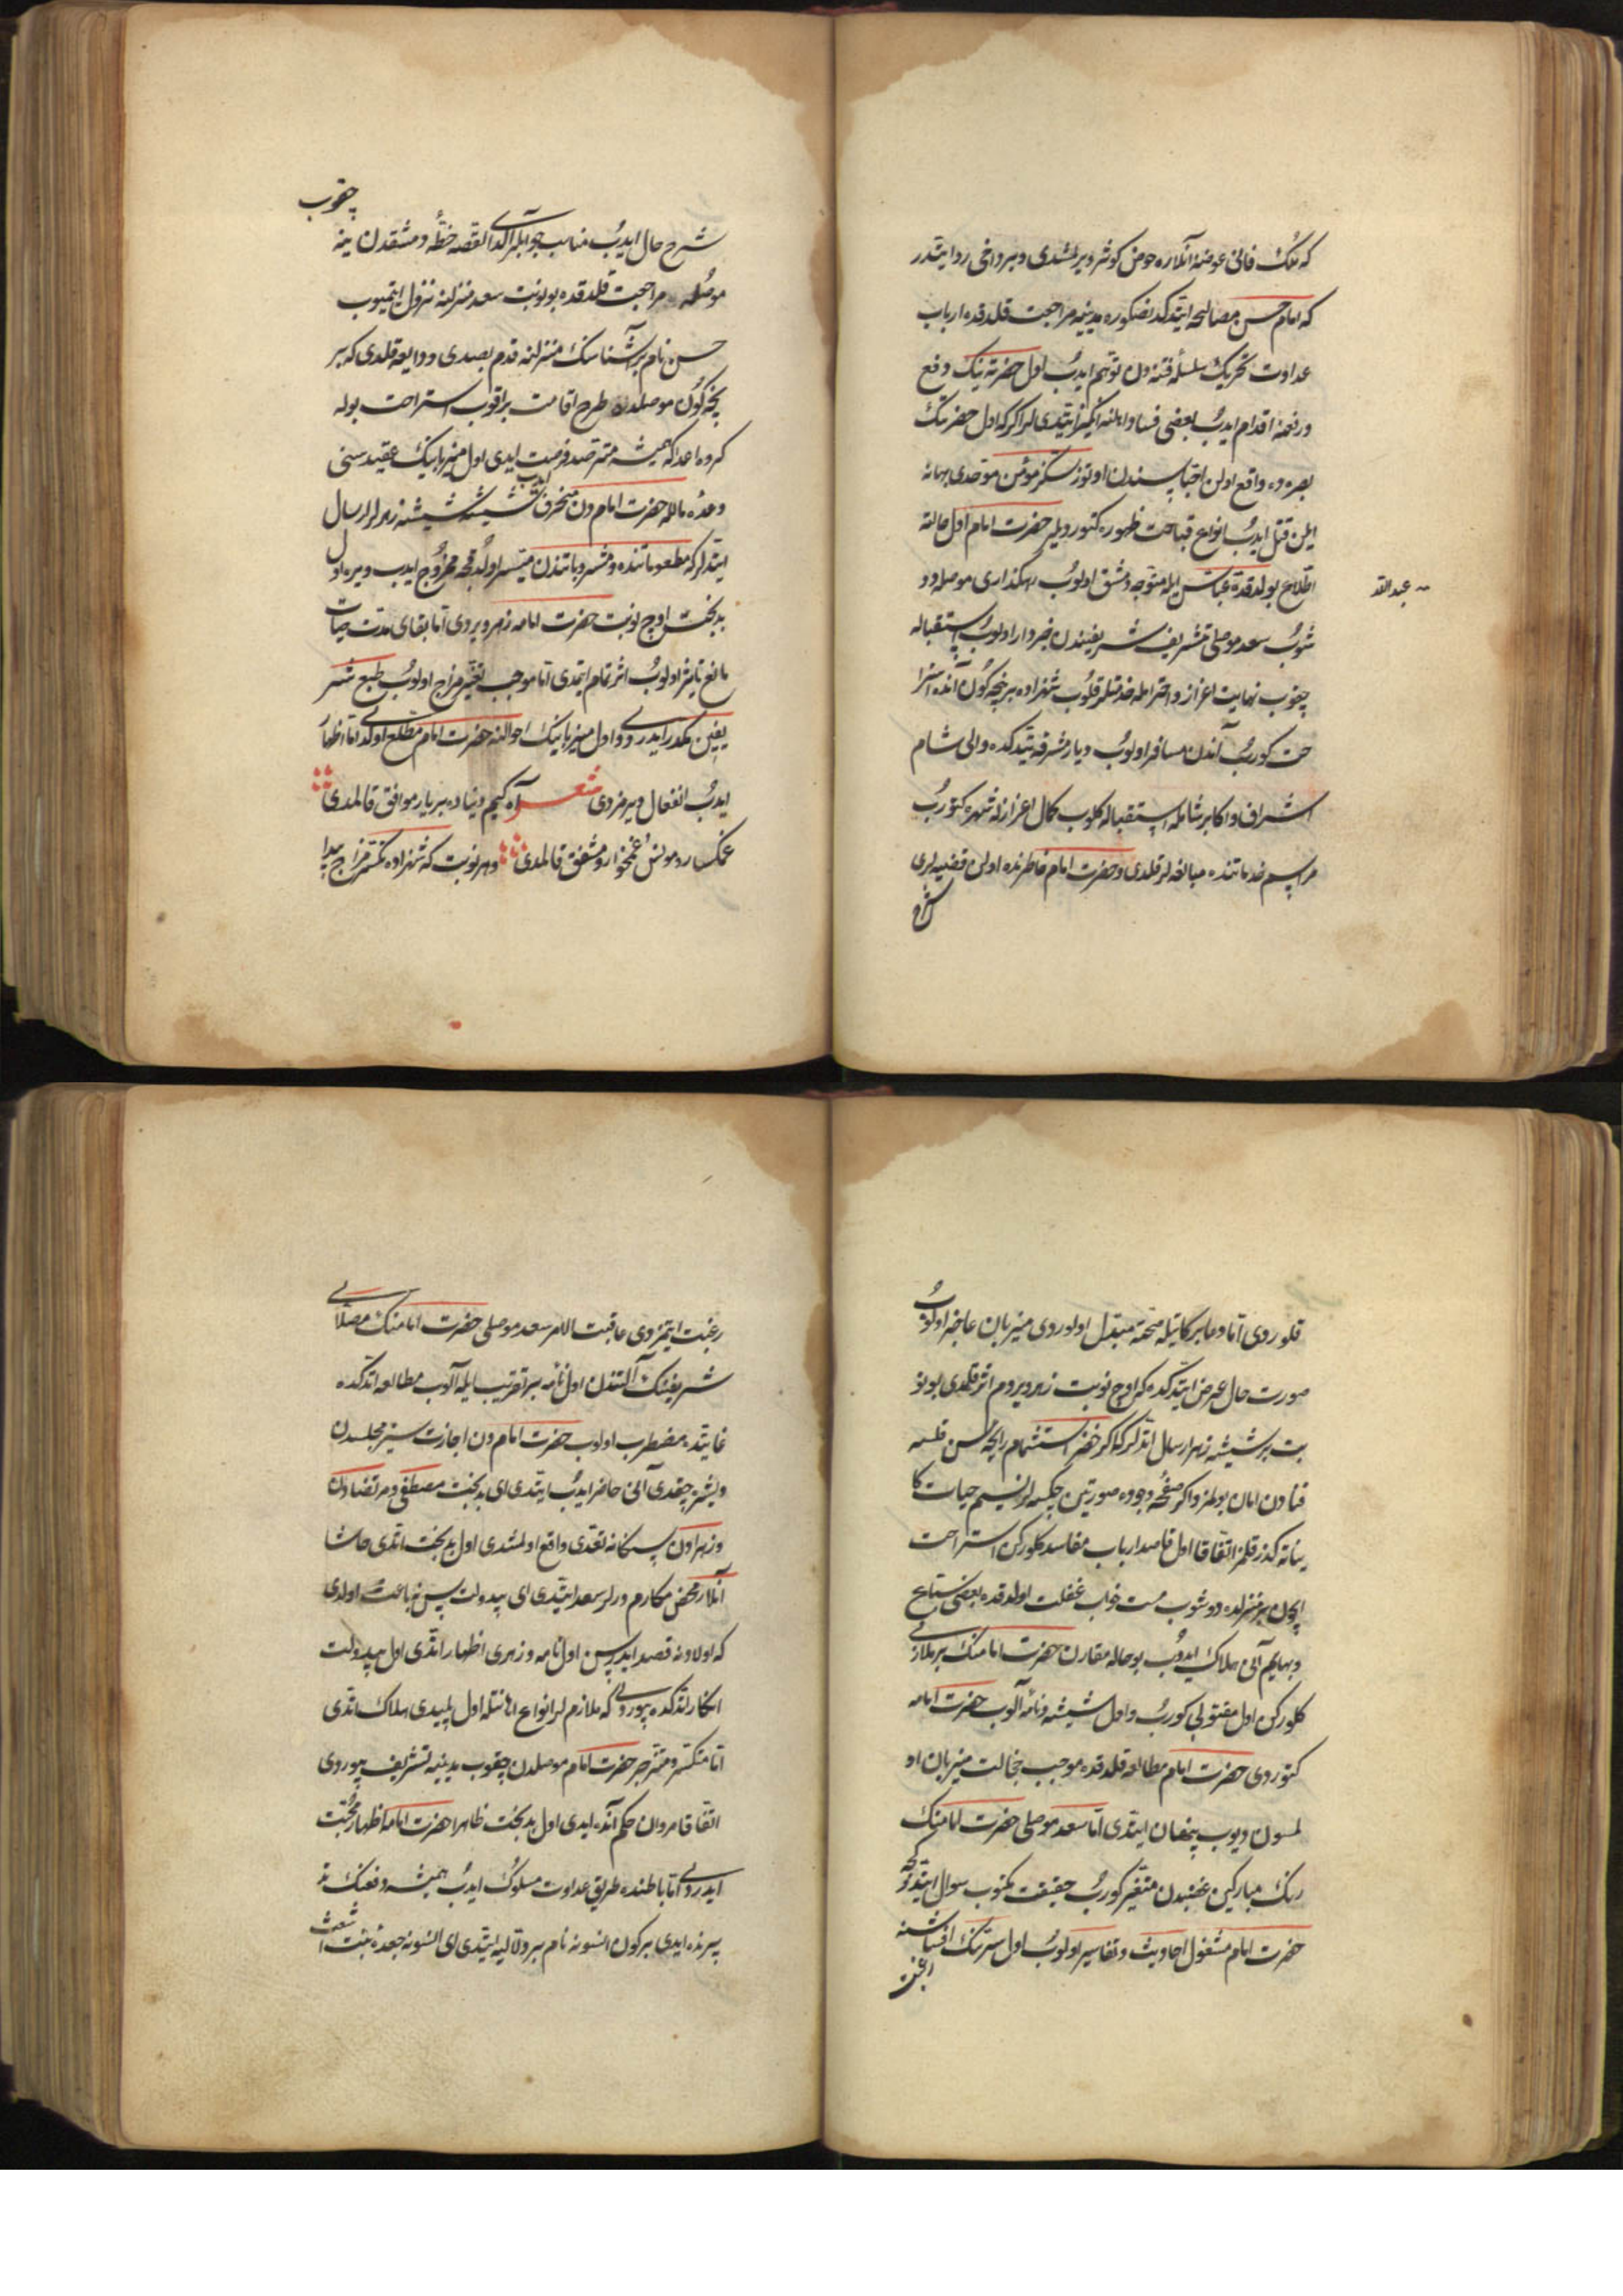 که ملک فانی عوضنه آنلاره حوض کوثر ویرلمشدی و بیر داخی روایتدر
که امام حسن مصالحه ایتدکدنصکوره مدینیه مراجعت قلدقده ارباب
عداوت تحریک سلسله فتنه دن توهم ایدب اول حضرته نیک دفع
و رفعنه اقدام ایدب بعضی فساد اهلنه ایتدیلر که اول حضرتنک
بصره ده واقع اولن احباسندن اوتوز سکز مؤمن موحدی بهانه
ایلن قتل ایدب انواع قباحت ظهوره کتوردیلر حضرت امام اول حالته
اطلاع بولدقده عباس ایله متوجه دمشق اولوب رهکذاری موصله دو
عبدالله
شوب سعد موصلی تشریف شریفیندن خبردار اولوب استقباله
چیخوب نهایت اعزاز و احترامله خدمتلر قلوب شهزاده بیر نچه کون آنده استرا
حت کورب آندن مسافر اولوب دیار دمشقه یتدکده والی شام
اشراف و اکابر شامله استقباله کلوب کمال اعزازله شهره کتورب
مراسم خدماتنده مبالغه لر قلدی و حضرت امام خاطرنده اولن قضیه لری
شرح
چقوب
شرح حال ایدب مناسب جوابلر آلدی القصه خطه دمشقدن ینه
موصله مراجعت قلدقده بو نوبت سعد منزلنه نزول ایتمیوب
حسن نام بر آشناسنک منزلنه قدم بصدی و داعیه قلدی که بر
نچه کون موصلده طرح اقامت براقوب استراحت بوله
کروه اعدا که همیشه مترصد فرصت ایدی اول میزبانیک عقیده سنی
وعده مالله حضرت امام دن منحرف ایدب شیشه شیشه زهرلر ارسال
ایتدلر که مطعوماتنده و مشروباتندن میسر اولدقچه ممزوج ایدب ویره اول
بدبخت اوچ نوبت حضرت امامه زهر ویردی اما بقای مدت حیات
مانع تاثیر اولوب اثر تمام ایتمدی اما موجب تغییر مزاج اولوب طبع شر
یفین مکدر ایدردی و اول میزبانیک احوالنه حضرت امام مطلع اولدی اما اظهار
ایدب انفعال ویرمزدی شعر آه کیم دنیاده بر یار موافق قالمدی
غمکسار و مونس و غمخوار و مشفق قالمدی و هر نوبت که شهزاده تکسر مزاج پیدا
قلوردی اما دعا برکاتیله صحته مبدل اولوردی میزبان عاجز اولوب
صورت حال عرض ایتدکده که اوچ نوبت زهر ویردم اثر قلمدی بو نو
بت بر شیشه زهر ارسال اتدلر که اکر خضر استشمام رایحه سن قلسه
فنادن امان بولمز و اکر صفحه وجوده صورتین چکسه لر نسیم حیات کا
یناته کذر قلمز اتفاقا اول قاصد ارباب مفاسد کلورکن استراحت
ایچون بر منزلده دوشوب مست خواب غفلت اولدقده بعضی سباع
و بهایم آنی هلاک ایدوب بو حاله مقارن حضرت امامنک بر ملازمی
کلورکن اول مقتولی کورب و اول شیشه و نامه آلوب حضرت امامه
کتوردی حضرت امام مطالعه قلدقده موجب خجالت میزبان او
لمسون دیوب پنهان ایتدی اما سعد موصلی حضرت امامنک
رنک مبارکین غضبدن متغیر کورب حقیقت مکتوب سوال ایتدکچه
حضرت امام مشغول احادیث و تفاسیر اولوب اول سرنک افشاسنه
رغبت
رغبت ایتمزدی عاقبت الامر سعد موصلی حضرت امامنک مصلای
شریفینک آلتندن اول نامه بر تقریب ایله آلوب مطالعه اتدکده
غایتده مضطرب اولوب حضرت امام دن اجازت سیز مجلسدن
دیشره چقدی آنی حاضر ایدب ایتدی ای بدبخت مصطفی و مرتضادن
و زهرادن سکا نه تعدی واقع اولمشدی اول بدبخت اتدی حاشا
آنلار محض مکارم درلر سعد ایتدی ای بیدولت پس نه باعث اولدی
که اولادنه قصد ایدرسن اول نامه و زهری اظهار اتدی اول بیدولت
انکار اتدکده بیوردی که ملازملر انواع اهانتله اول پلیدی هلاک اتدی
اما منکسر و منزجر حضرت امام موصلدن چقوب مدینیه تشریف بیوردی
اتفاقا مروان حکم آنده ایدی اول بدبخت ظاهرا حضرت امامه اظهار محبت
ایدردی اما باطنده طریق عداوت مسلوک ایدب همیشه دفعنک تد
بیرنده ایدی بر کون السونه نام بر دلالیه ایتدی ای السونه جعده بنت اشعث